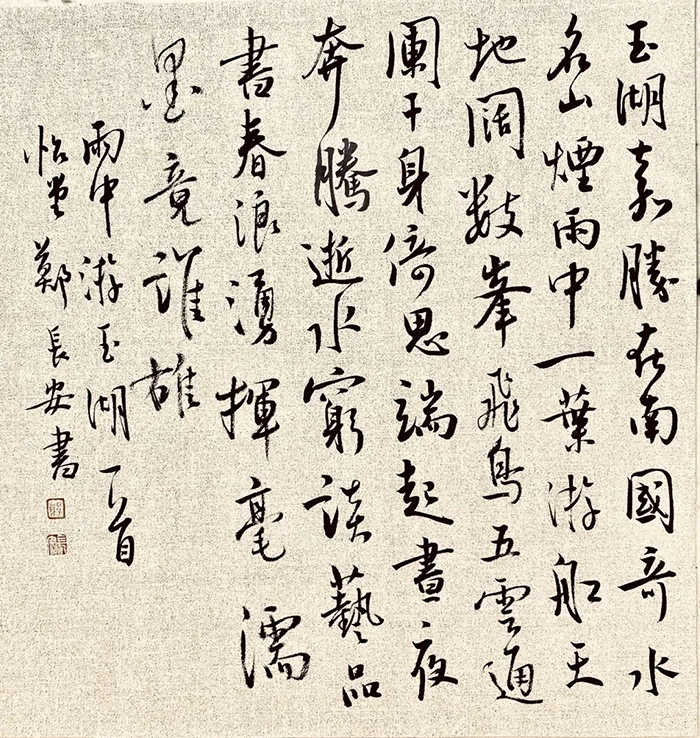 玉湖嘉勝在南國奇水
名山煙雨中一葉游船天
地闊數峯飛鳥五雲通
闌干身倚思端起晝夜
奔騰逝水窮談藝品
書春浪湧揮毫濡
墨竟誰雄
雨中游玉湖一首
怡堂鄭長安書